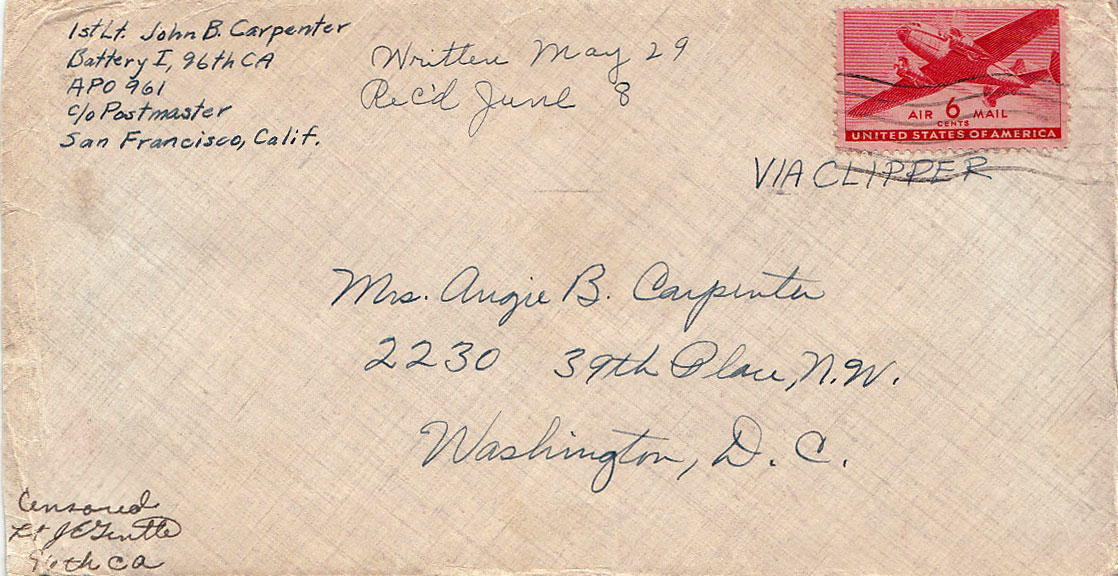 1st Lt. John B. Carpenter
Battery I, 96th CA
APO 961
c/o Postmaster
San Francisco, Calif.
Written May 29
Rec'd June 8
AIR 6 MAIL
CENTS
UNITED STATES OF AMERICA
VIA CLIPPER
Mrs. Angie B. Carpenter
2230 39th Place, N.W.
Washington, D. C.
Censored
Lt J E Gentle
96th CA